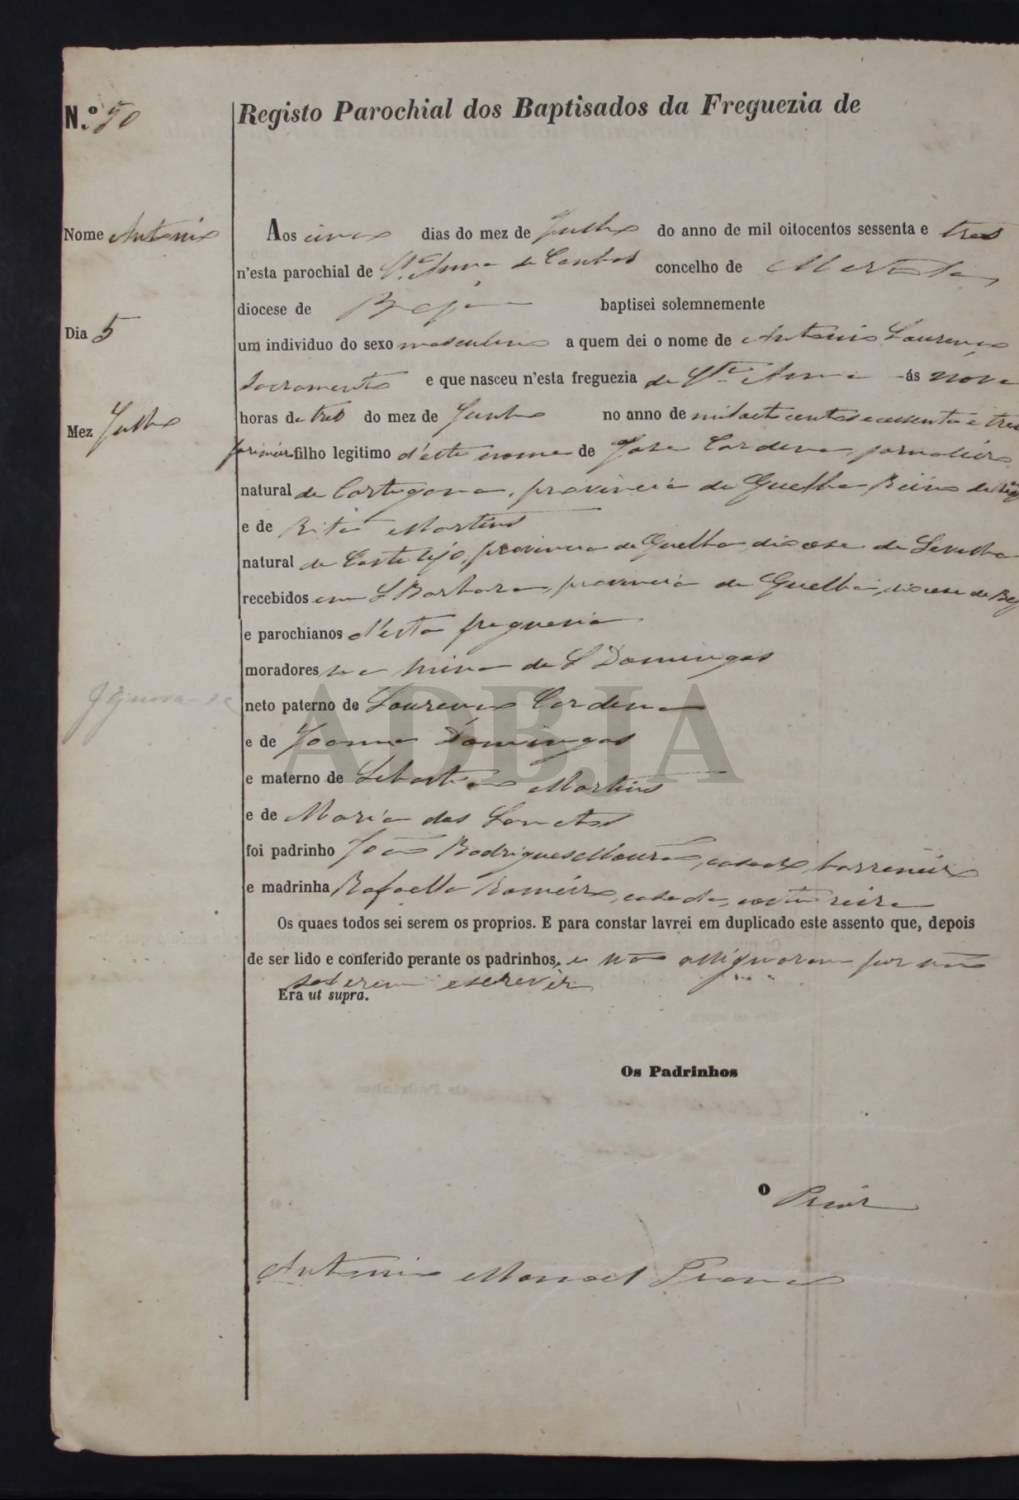 N.º 50
Registo Parochial dos Baptisados da Freguezia de
Nome Antonio
Aos cinco dias do mez de Julho do anno de mil oitocentos sessenta e tres
n'esta parochial de St.ª Anna de Cambas concelho de Mertola
diocese de Beja baptisei solemnemente
Dia 5
um individuo do sexo masculino a quem dei o nome de Antonio Lourenço
Sacramento e que nasceu n'esta freguezia de St.ª Anna ás nove
Mez Julho
horas de tres do mez de Junho no anno de mil oito centos e sessenta e tres
primeiro filho legitimo d'este nome de José Cordena, jornaleiro
natural de Cortegana, provincia de Guelba Reino de
e de Rita Martins
natural de Castelejo, provincia de Guelba diocese de Sevilha
recebidos em S Barbara, provincia de Guelba, diocese de
e parochianos d'esta freguezia
moradores na Mina de S Domingos
neto paterno de Lourenço Cordena
e de Joanna Domingos
e materno de Sebastião Martins
e de Maria dos Santos
foi padrinho João Rodrigues Mourão, casado, barreneiro
e madrinha Rafaella Romeiro, casada, costureira
Os quaes todos sei serem os proprios. E para constar lavrei em duplicado este assento que, depois
de ser lido e conferido perante os padrinhos, e não assignaram por não
saberem escrever
Era ut supra.
Os Padrinhos
O Prior
Antonio Manoel Franco
ADBJA